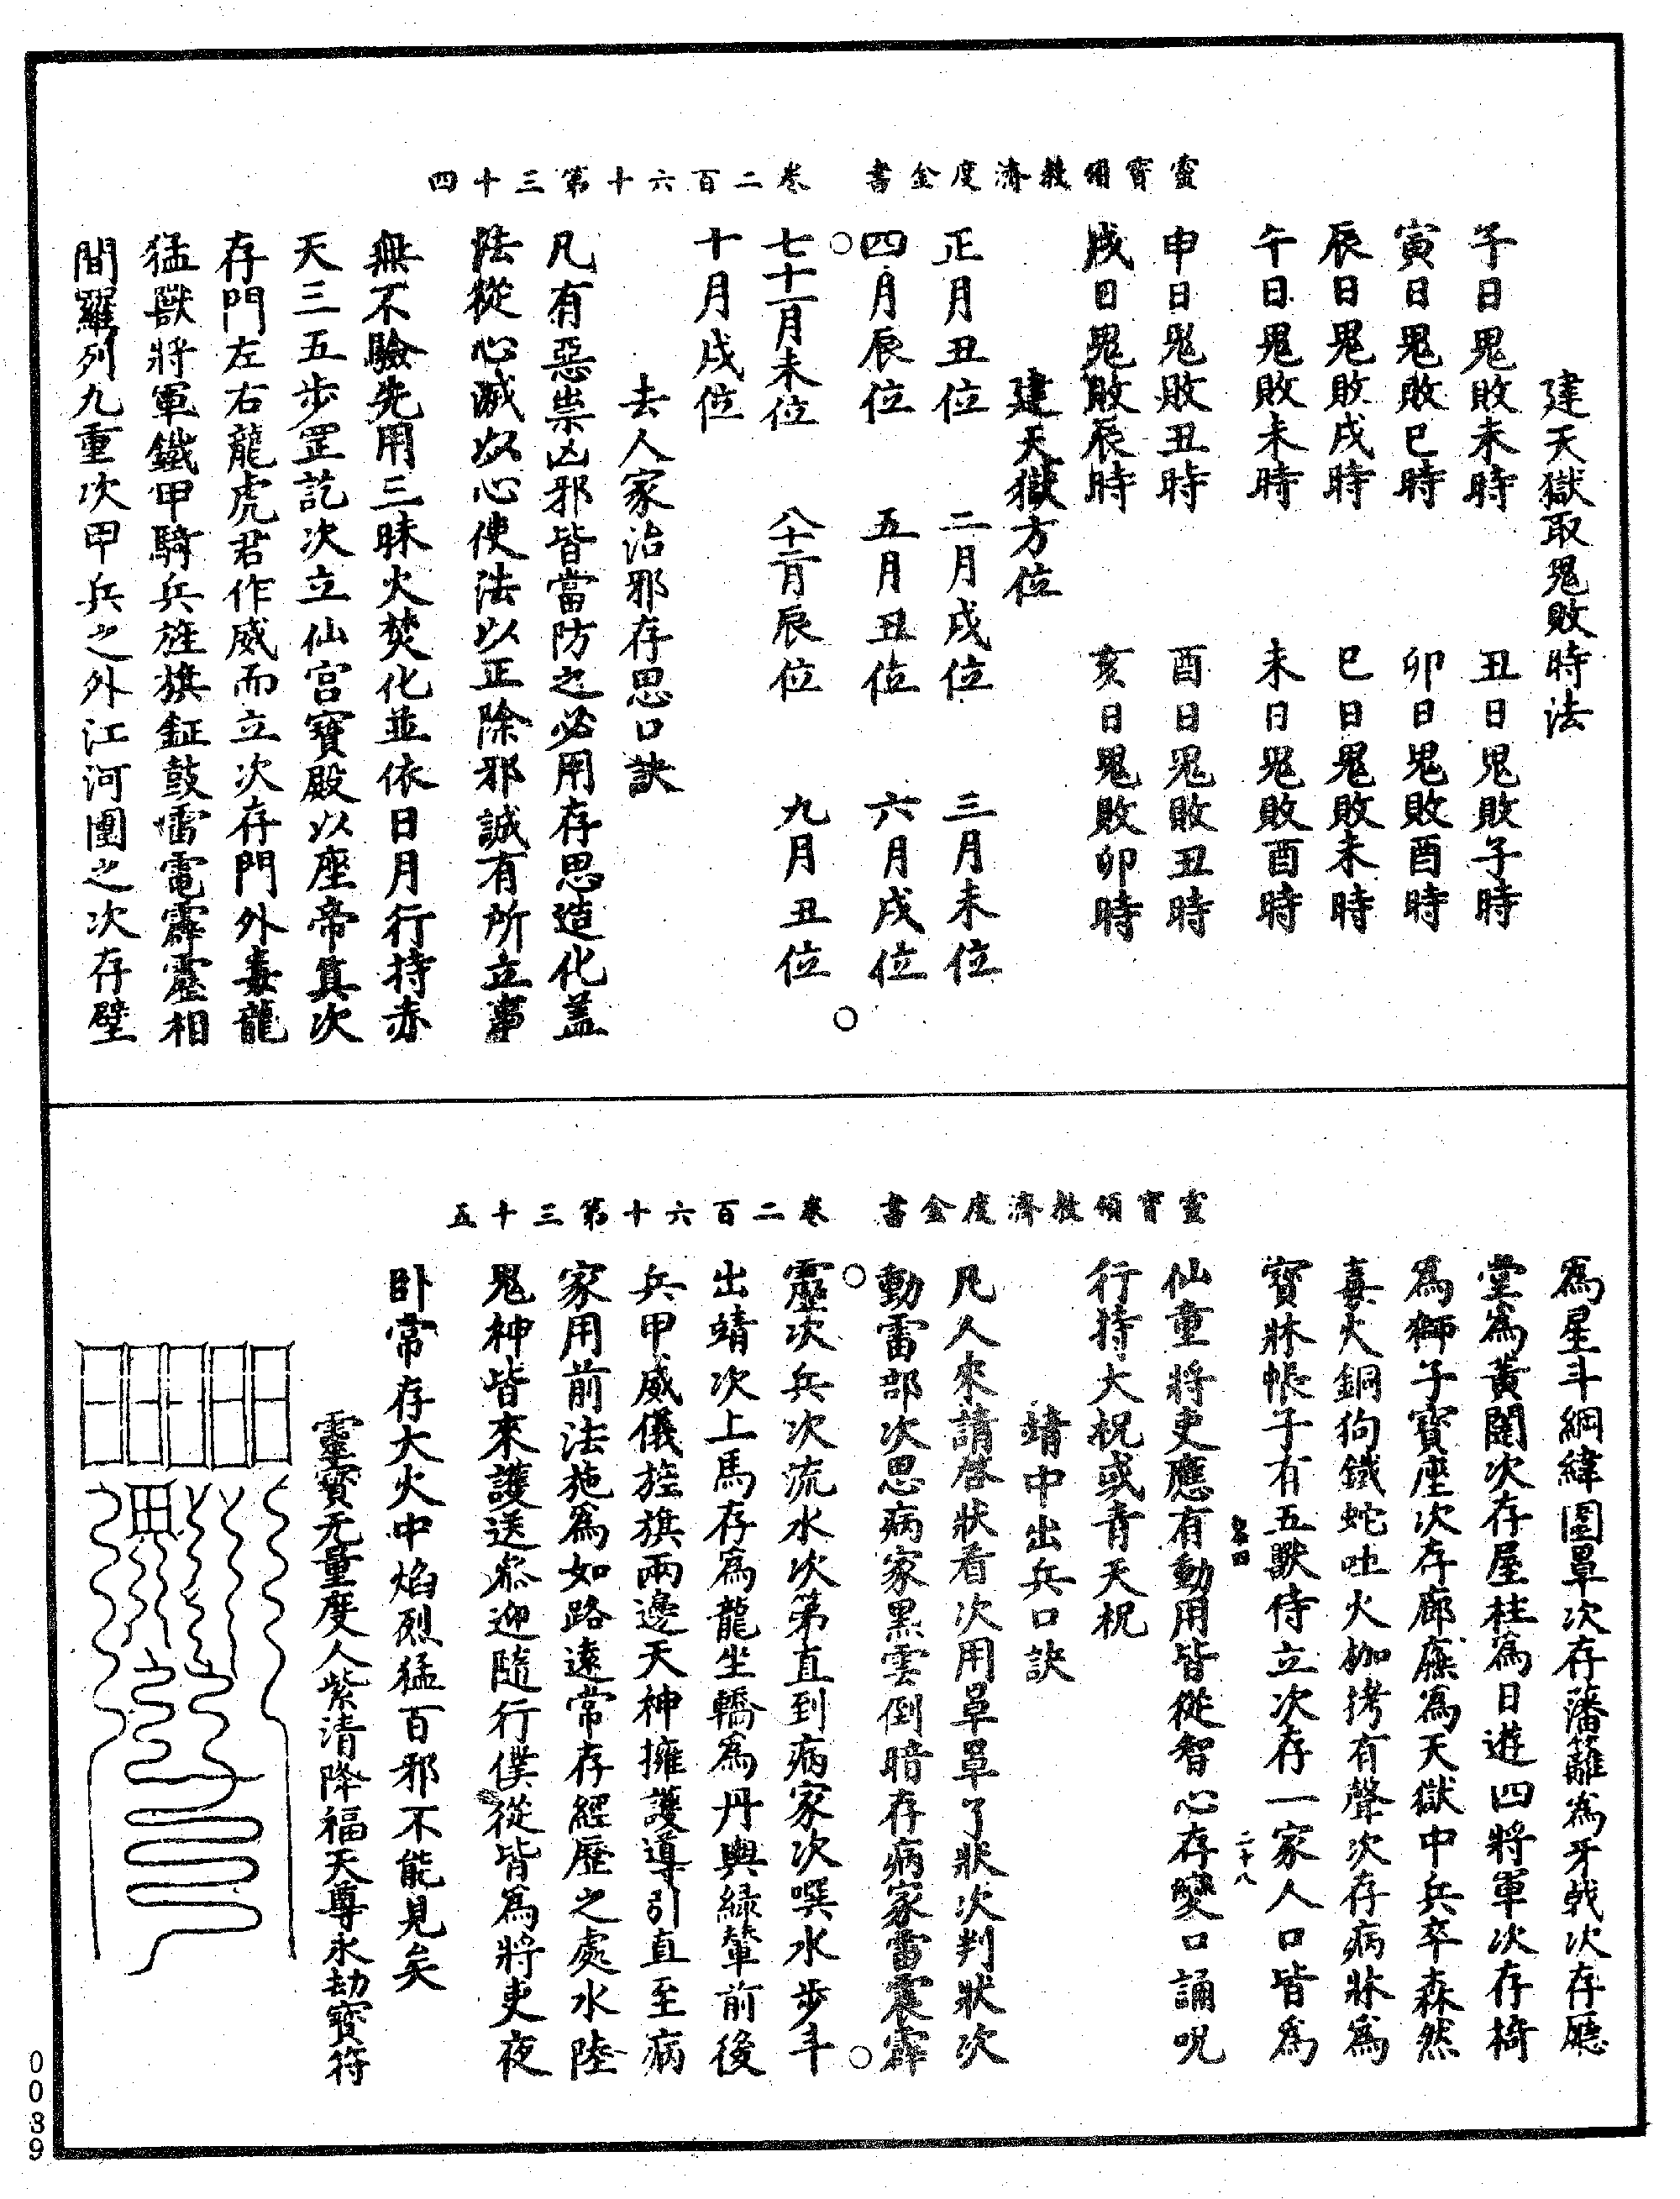 靈寶領教濟度金書　卷二百六十第三十四
建天獄取鬼敗時法
子日鬼敗未時　丑日鬼敗子時
寅日鬼敗巳時　卯日鬼敗酉時
辰日鬼敗戌時　巳日鬼敗未時
午日鬼敗未時　未日鬼敗酉時
申日鬼敗丑時　酉日鬼敗丑時
戌日鬼敗辰時　亥日鬼敗卯時
建天獄方位
正月丑位　二月戌位　三月未位
四月辰位　五月丑位　六月戌位
七十一月未位　八十二月辰位　九月丑位
十月戌位
去人家治邪存思口訣
凡有惡祟凶邪皆當防之必用存思造化盖
法從心滅以心使法以正除邪誠有所立事
無不驗先用三昧火焚化並依日月行持赤
天三五步罡訖次立仙宫寶殿以座帝真次
存門左右龍虎君作威而立次存門外毒龍
猛獸將軍鐵甲騎兵旌旗鉦鼓雷電霹靂相
間羅列九重次甲兵之外江河圍之次存壁
靈寶領教濟度金書　卷二百六十第三十五
為星斗綱緯圍罩次存藩籬為牙戟次存廳
堂為黄闕次存屋柱為日遊四將軍次存椅
為獅子寶座次存廊廡為天獄中兵卒森然
毒火銅狗鐵蛇吐火枷拷有聲次存病牀為
寶牀帳子有五獸侍立次存一家人口皆為
二十八
仙童將吏應有動用皆從智心存變口誦呪
行持大祝或青天祝
靖中出兵口訣
凡人來請啓狀看次用罩罩了狀次判狀次
動雷部次思病家黑雲倒暗存病家雷震霹
靂次兵次流水次第直到病家次噀水步斗
出靖次上馬存為龍坐轎為丹輿緑輦前後
兵甲威儀旌旗兩邊天神擁護導引直至病
家用前法施為如路遠常存經歷之處水陸
鬼神皆來護送叅迎隨行僕從皆為將吏夜
卧常存大火中焰烈猛百邪不能見矣
靈寶无量度人紫清降福天尊永劫寶符
0039